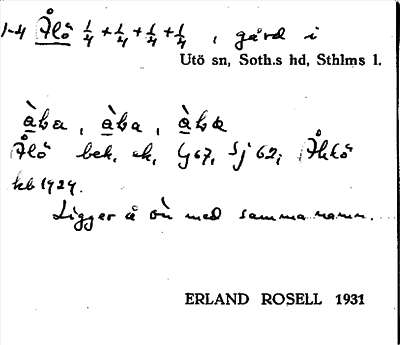 1-4 Ålö 1/4 + 1/4 + 1/4 + 1/4 , gård i
Utö sn, Soth.s hd, Sthlms l.
Ålö bek. ek. Gj 62; Åhlö
kb 1929.
Ligger å ön med samma namn.
ERLAND ROSELL 1931